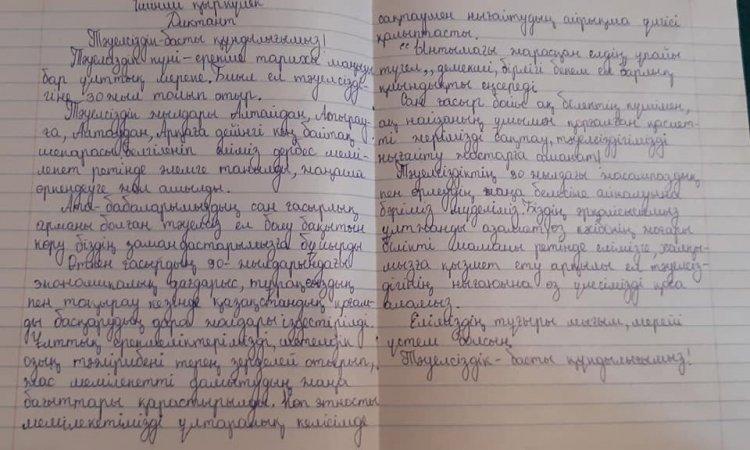 Диктант
Тәуелсіздік-басты құндылығымыз!
Тәуелсіздік күні-ерекше тарихи маңызы
бар ұлттық мереке. Биыл ел тәуелсізді-
гіне 30 жыл толып отыр.
Тәуелсіздік жылдары Алтайдан, Атырау-
ға, Алатаудан, Арқаға дейінгі кең байтақ
шекарасы белгіленіп еліміз дербес меми-
лекет ретінде әлемге танылды, жаңаша
өркендеуге жол ашылды.
Ата-бабаларымыздың сан ғасырлық
арманы болған тәуелсіз ел болу бақытын
көру біздің замандастарымызға бұйырды
Өткен ғасырдың 90-жылдарындағы
экономикалық дағдарыс, тұрақсыздық
пен тоқырау кезінде қазақстандық қоғам-
ды басқарудың дара жолдары іздестірілді.
Ұлттық ерекшеліктерімізді, шетелдік
озық тәжірибені терең зерделей отырып,
жас мемілекетті дамытудың жаңа
бағыттары қарастырылды. Көп этносты
мемілекетімізді ұлтаралық келісімде
сақтаумен нығайтудың айрықша үлгісі
қалыптасты.
"Ынтымағы жарасқан елдің ырайы
түгел„, демекші, бірлігі бекем ел барлық
қиындықты еңсереді
Сан ғасыр бойы ақ білектің күшімен,
ақ найзаның ұшымен қорғалған қасиет-
ті жерімізді сақтау, тәуелсіздігімізді
нығайту жастарға аманат!
Тәуелсіздіктің 30 жылдағы жасампаздық
пен өрлеудің жаңа белесіне айналуына
берілміз Біздің әрқайсымыз
ұлтжанды азамат, өз кәсібінің жоғары
білікті маманы ретінде елімізге, халқы-
мызға қызмет ету арқылы ел тәуелсіз-
дігінің нығаюына өз үлесімізді қоса
аламыз.
Еліміздің тұғыры мығым, мерейі
үстем болсын.
Тәуелсіздік-басты құндылығымыз!